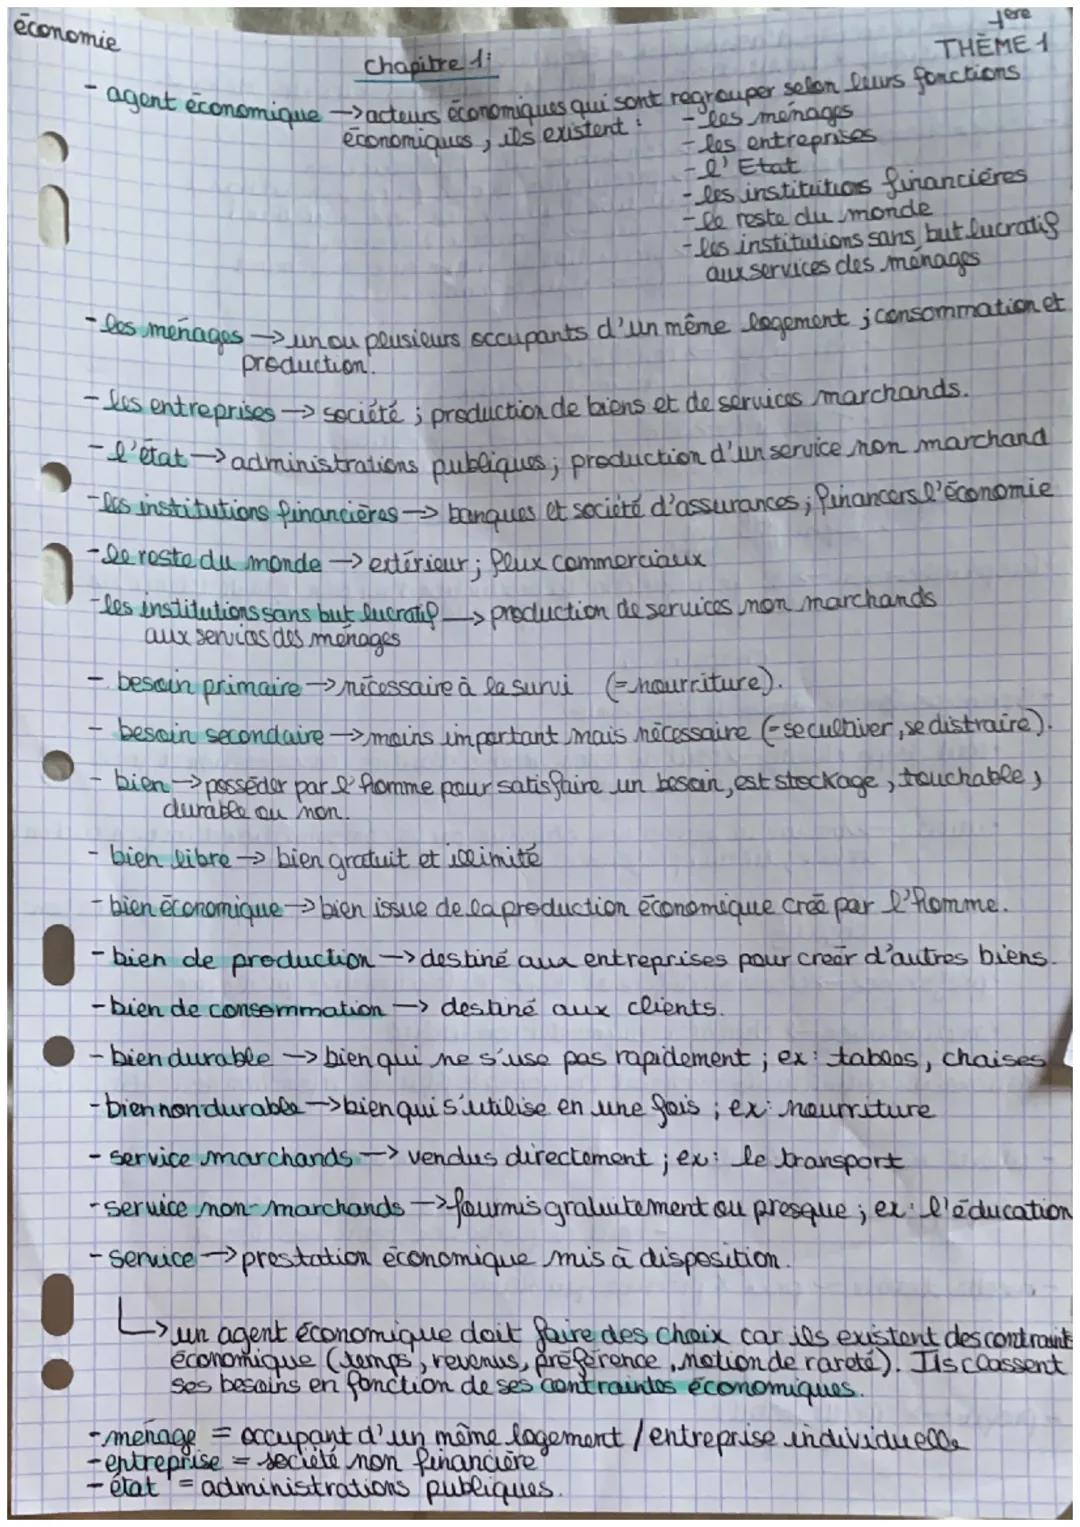 économie
1ère
THÈME 1
Chapitre 1:
- agent économique → acteurs économiques qui sont regrouper selon leurs fonctions
économiques, ils existent :
- les ménages
- les entreprises
- l'Etat
- les institutions financières
- le reste du monde
- les institutions sans but lucratif
aux services des ménages
- les ménages → un ou plusieurs occupants d'un même logement ; consommation et
production.
- les entreprises → société ; production de biens et de services marchands.
- l'état → administrations publiques ; production d'un service non marchand
- les institutions financières → banques et société d'assurances ; financers l'économie
- le reste du monde → extérieur ; flux commerciaux
- les institutions sans but lucratif → production de services non marchands
aux services des ménages
- besoin primaire → nécessaire à la survi (= nourriture).
- besoin secondaire → moins important mais nécessaire (= se cultiver, se distraire).
- bien → posséder par l'homme pour satisfaire un besoin, est stockage, touchable,
durable ou non.
- bien libre → bien gratuit et illimité
- bien économique → bien issue de la production économique créé par l'homme.
- bien de production → destiné aux entreprises pour créér d'autres biens.
- bien de consommation → destiné aux clients.
- bien durable → bien qui ne s'use pas rapidement ; ex: tables, chaises
- bien non durable → bien qui s'utilise en une fois ; ex: nourriture
- service marchands → vendus directement ; ex: le transport
- service non-marchands → fournis gratuitement ou presque ; ex: l'éducation
- service → prestation économique mis à disposition.
↳ un agent économique doit faire des choix car ils existent des contraint
économique (temps, revenus, préférence, notion de rareté). Ils classent
ses besoins en fonction de ses contraintes économiques.
- ménage = occupant d'un même logement / entreprise individuelle
- entreprise = société non financière
- état = administrations publiques.